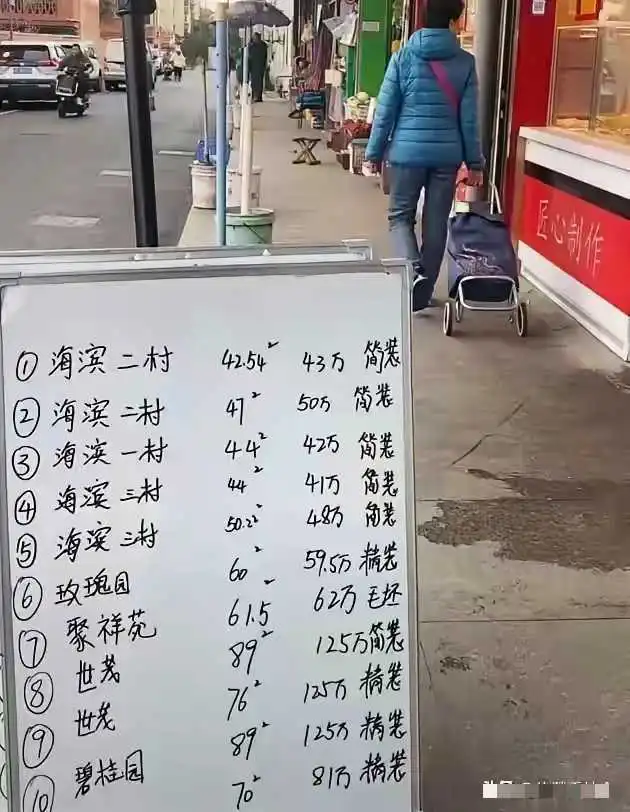 ① 海滨二村 42.54² 43万 简装
② 海滨二村 47² 50万 简装
③ 海滨一村 44² 42万 简装
④ 海滨三村 44² 41万 简装
⑤ 海滨三村 50.2² 48万 简装
⑥ 玫瑰园 60² 59.5万 精装
⑦ 聚祥苑 61.5² 62万 毛坯
⑧ 世茂 89² 125万 简装
⑨ 世茂 76² 125万 精装
⑩ 碧桂园 89² 125万 精装
70² 81万 精装
匠心制作